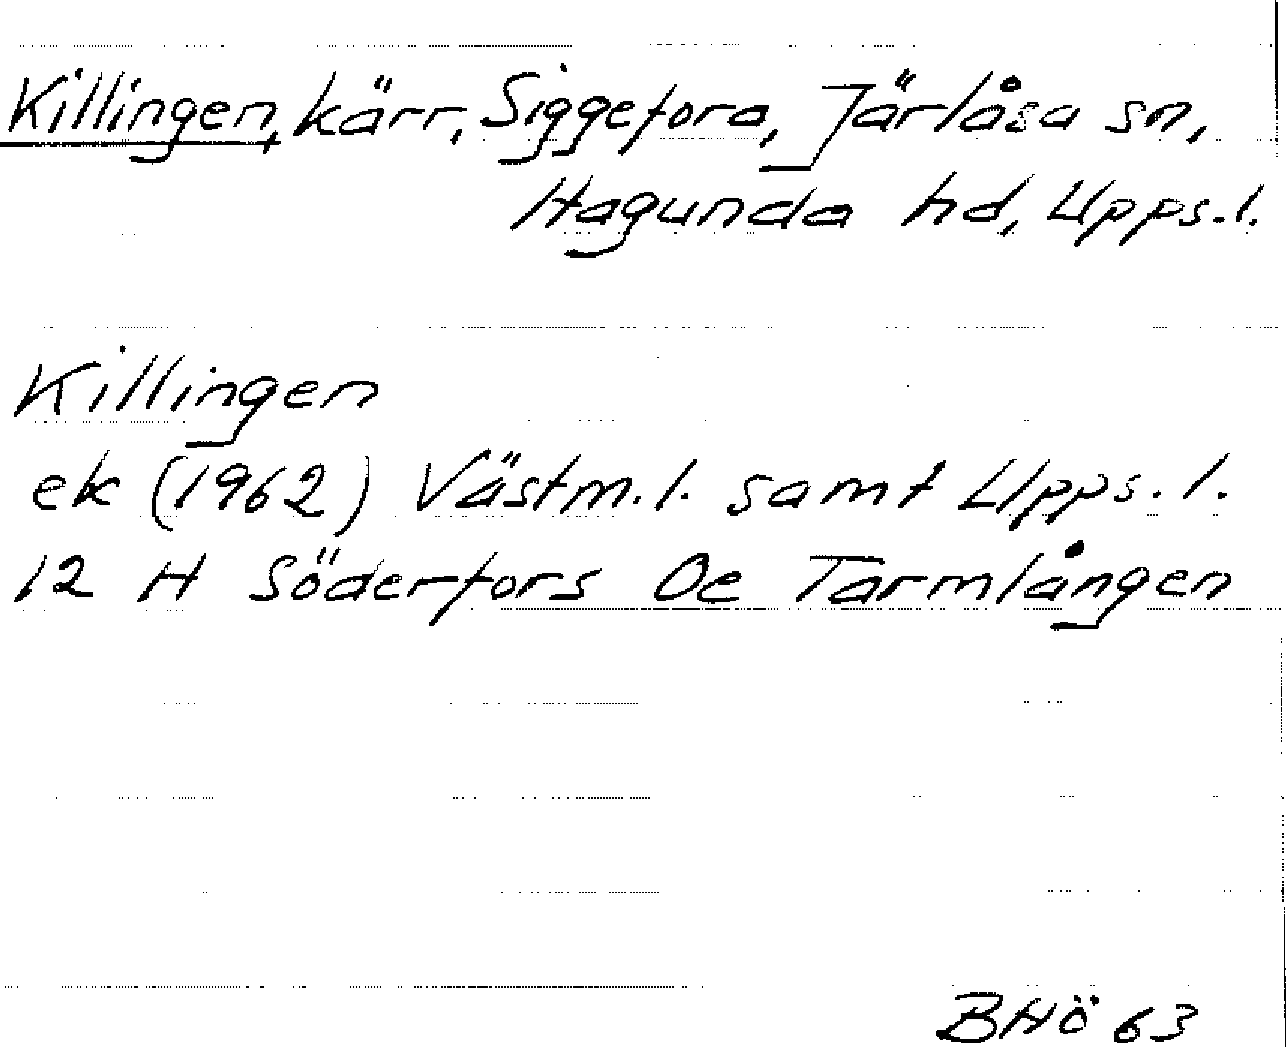 Killingen, kärr, Siggefora, Järlåsa sn,
Hagunda hd, Upps. l.
Killingen
ek (1962) Västm. l. samt Upps. l.
12 H Söderfors 0e Tarmlången
BHÖ 63